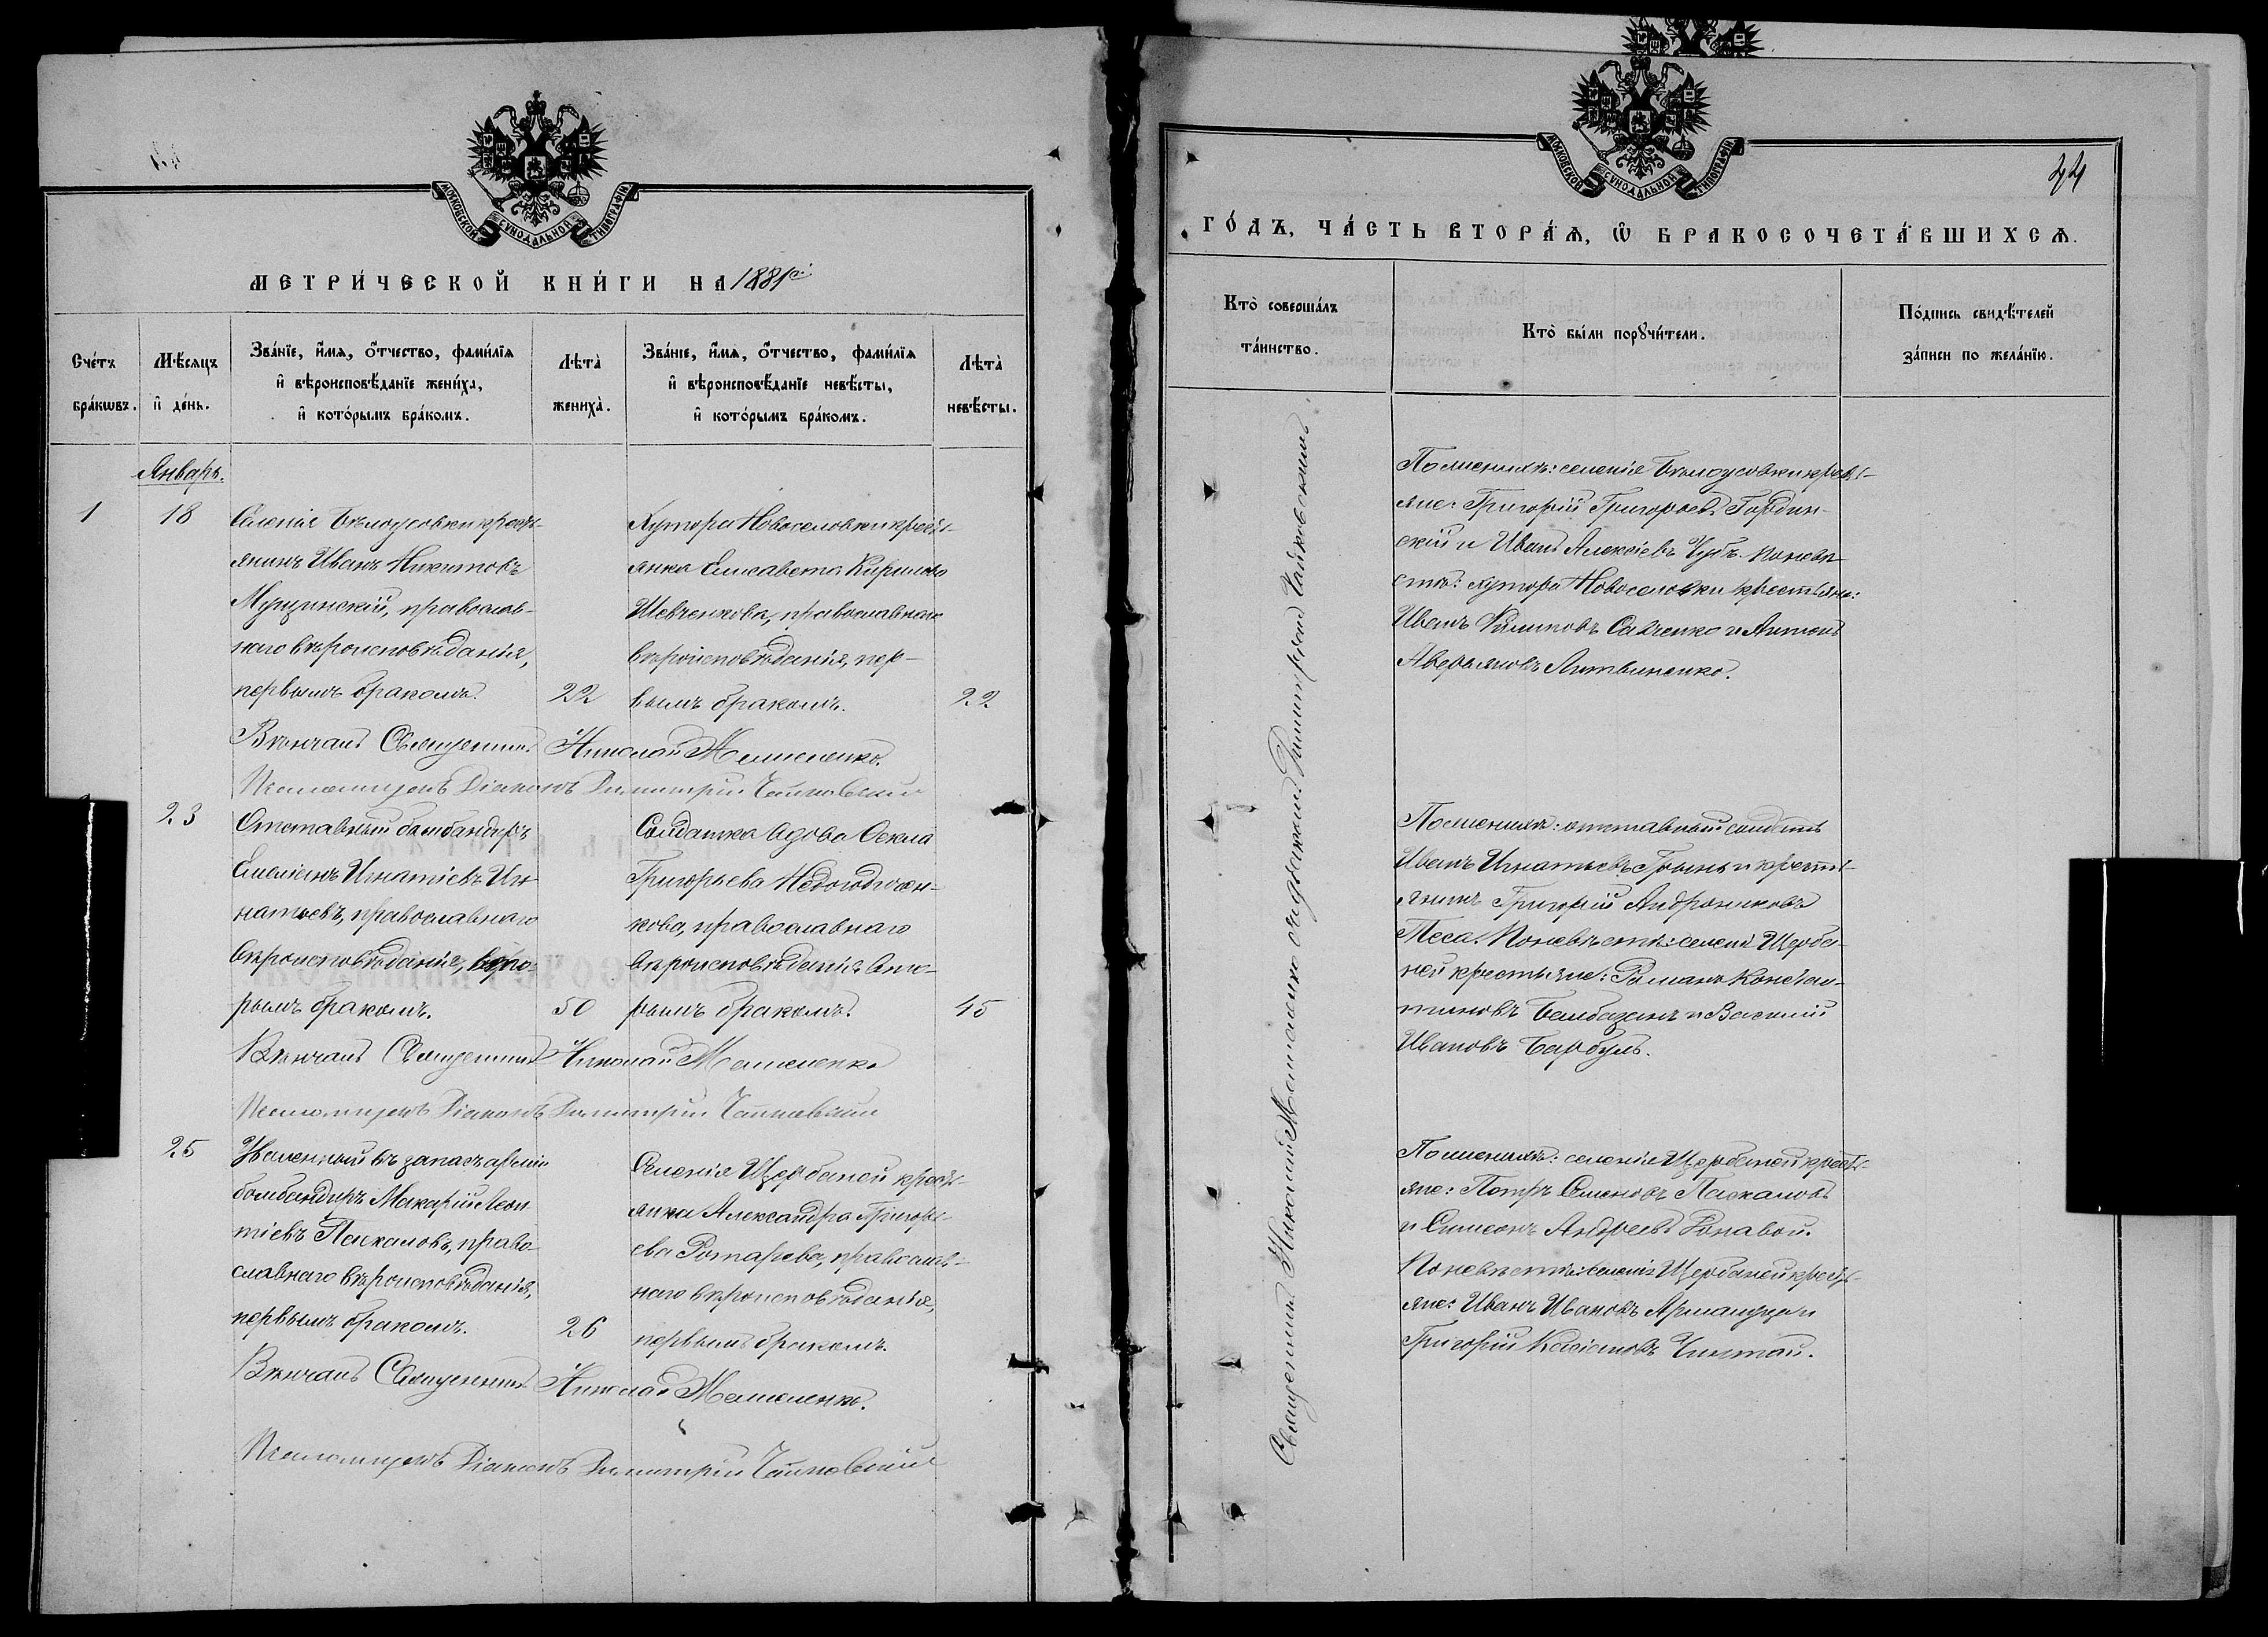 МОСКОВСКОЙ СѴНОДАЛЬНОЙ ТИПОГРАФІИ
МЕТРИ́ЧЕСКОЙ КНИ́ГИ НА 1881й
Сче́тъ бра́кѡвъ.
Мѣ́сяцъ и҆ де́нь.
Зва́нїе, и҆́мѧ, ѻ҆́тчество, фами́лїѧ
и҆ вѣроисповѣ́данїе жениха̀,
и҆ кото́рымъ бра́комъ.
Лѣта̀ жениха̀.
Зва́нїе, и҆́мѧ, ѻ҆́тчество, фами́лїѧ
и҆ вѣроисповѣ́данїе невѣ́сты,
и҆ кото́рымъ бра́комъ.
Лѣта̀ невѣ́сты.
Январь.
1
18
Селенія Бѣлоусовки кресть-
янинъ Иванъ Никитовъ
православ-
наго вѣроисповѣданія,
первымъ бракомъ.
22
Хутора Новоселовки кресть-
янка Елисавета Кирилова
Шевченкова, православнаго
вѣроисповѣданія, пер-
вымъ бракомъ.
22
Вѣнчалъ Священникъ Николай
Псаломщикъ Діаконъ Димитрій Чайковскій
23
Отставный бомбандиръ
Емеліанъ Игнатіевъ Иг-
натьевъ, православнаго
вѣроисповѣданія, вто-
рымъ бракомъ.
50
Солдатка вдова Ѳекла
Григорьева
кова, православнаго
вѣроисповѣданія вто-
рымъ бракомъ.
45
Вѣнчалъ Священникъ Николай
Псаломщикъ Діаконъ Димитрій Чайковскій
25
Уволенный въ запасъ арміи
бомбандиръ Макарій Леон
тіевъ Паскаловъ, право-
славнаго вѣроисповѣданія,
первымъ бракомъ.
26
Селенія Щербаней кресть-
янка Александра Григорь-
ева Ротарева, православ-
наго вѣроисповѣданія,
первымъ бракомъ.
Вѣнчалъ Священникъ Николай
Псаломщикъ Діаконъ Димитрій Чайковскій
МОСКОВСКОЙ СѴНОДАЛЬНОЙ ТИПОГРАФІИ
44
ГО́ДЪ, ЧА́СТЬ ВТОРА́Ѧ, Ѽ БРАКОСОЧЕТА́ВШИХСѦ.
Кто̀ соверша́лъ та́инство.
Кто̀ бы́ли порꙋчи́тели.
По́дпись свидѣ́телей
за́писи по жела́нїю.
Священникъ Николай съ діакономъ Димитріемъ Чайковскимъ.
По женихѣ: селенія Бѣлоусовки кресть-
яне: Григорій Григорьевъ Гордин-
скій и Иванъ Алексіевъ Чубъ. По невѣ-
стѣ: хутора Новоселовки крестьяне:
Иванъ Филиповъ Савченко и Антонъ
Аверьяновъ Литвиненко.
По женихѣ: отставный солдатъ
Иванъ Игнатьевъ и кресть-
янинъ Григорій Андрониковъ
Теса. По невѣстѣ: селенія Щерба-
ней крестьяне: Романъ Констан-
тиновъ и Василій
Ивановъ Барбулъ.
По женихѣ: селенія Щербаней кресть-
яне: Петръ Семеновъ Паскаловъ
и Симеонъ Андреевъ
По невѣстѣ: селенія Щербаней кресть-
яне: Иванъ Ивановъ и
Григорій Касіановъ